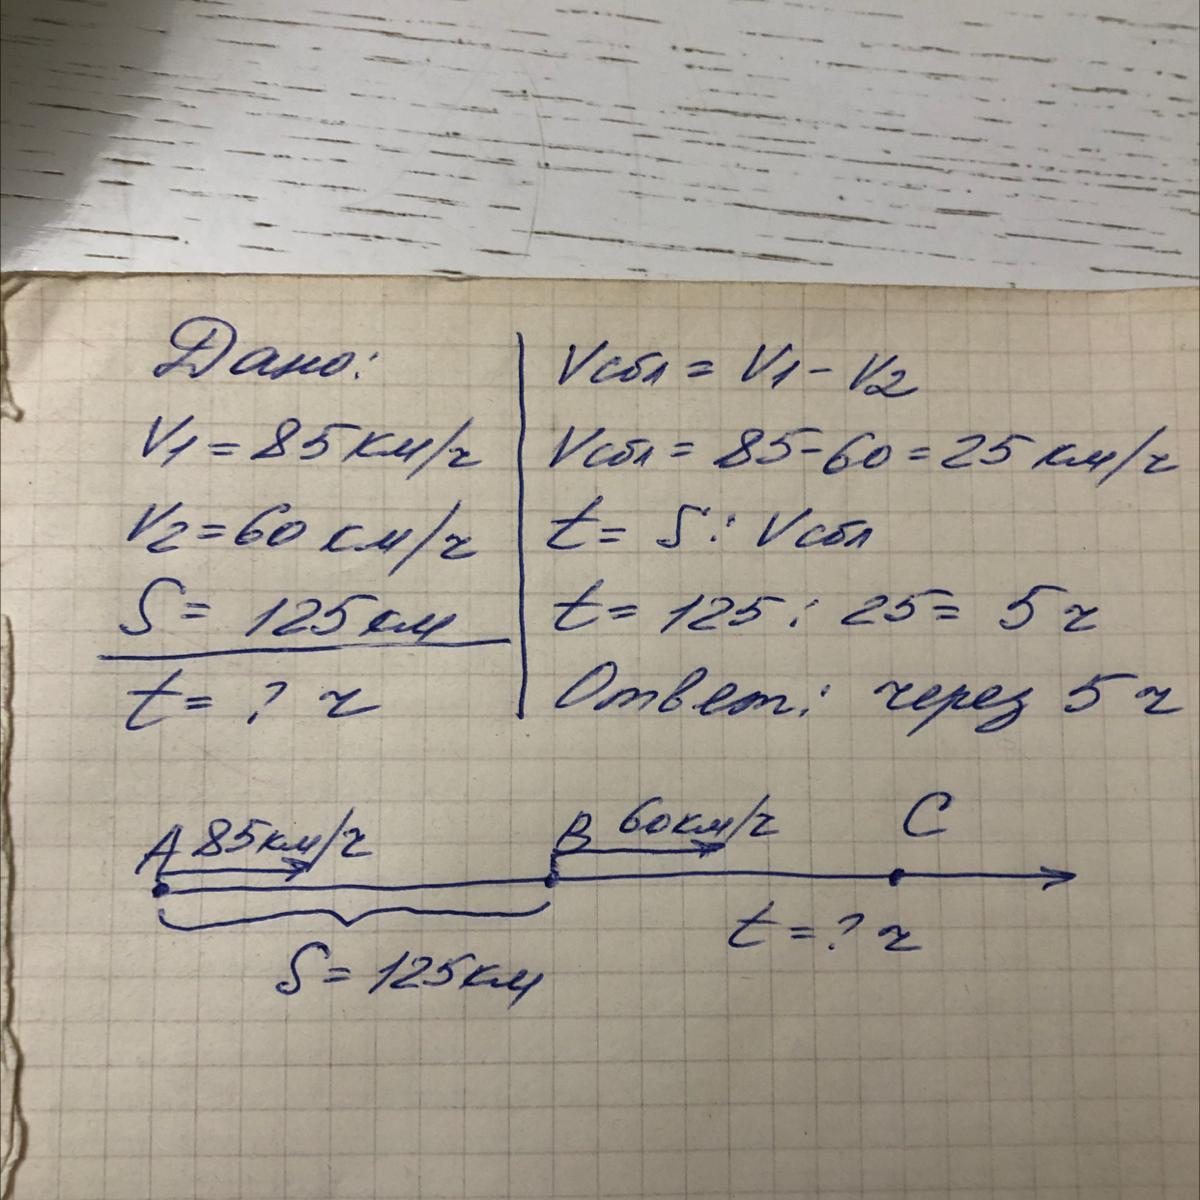 Дано:
V1 = 85 км/ч
V2 = 60 км/ч
S = 125 км
t = ? ч
Vсбл = V1 - V2
Vсбл = 85 - 60 = 25 км/ч
t = S : Vсбл
t = 125 : 25 = 5 ч
Ответ: через 5 ч
A 85км/ч B 60км/ч C
t = ? ч
S = 125 км